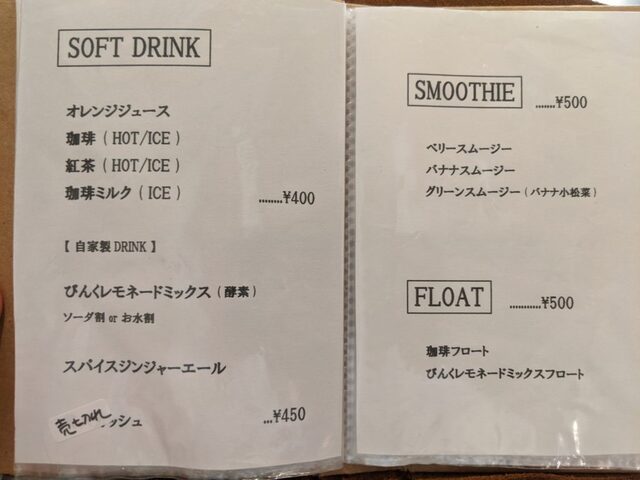 SOFT DRINK
オレンジジュース
珈琲 ( HOT/ICE )
紅茶 ( HOT/ICE )
珈琲ミルク ( ICE )
........¥400
【 自家製 DRINK 】
ぴんくレモネードミックス ( 酵素 )
ソーダ割 or お水割
スパイスジンジャーエール
売り切れ
ッシュ
...¥450
SMOOTHIE
.......¥500
ベリースムージー
バナナスムージー
グリーンスムージー ( バナナ小松菜 )
FLOAT
...........¥500
珈琲フロート
ぴんくレモネードミックスフロート